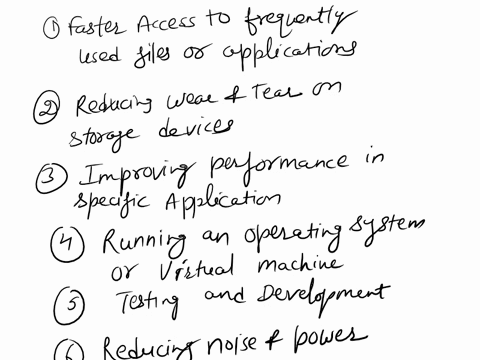 ① Faster Access to frequently
used files or applications
② Reducing wear & Tear on
storage devices
③ Improving performance in
specific Application
④ Running an operating system
or Virtual machine
⑤ Testing and Development
⑥ Reducing noise & power